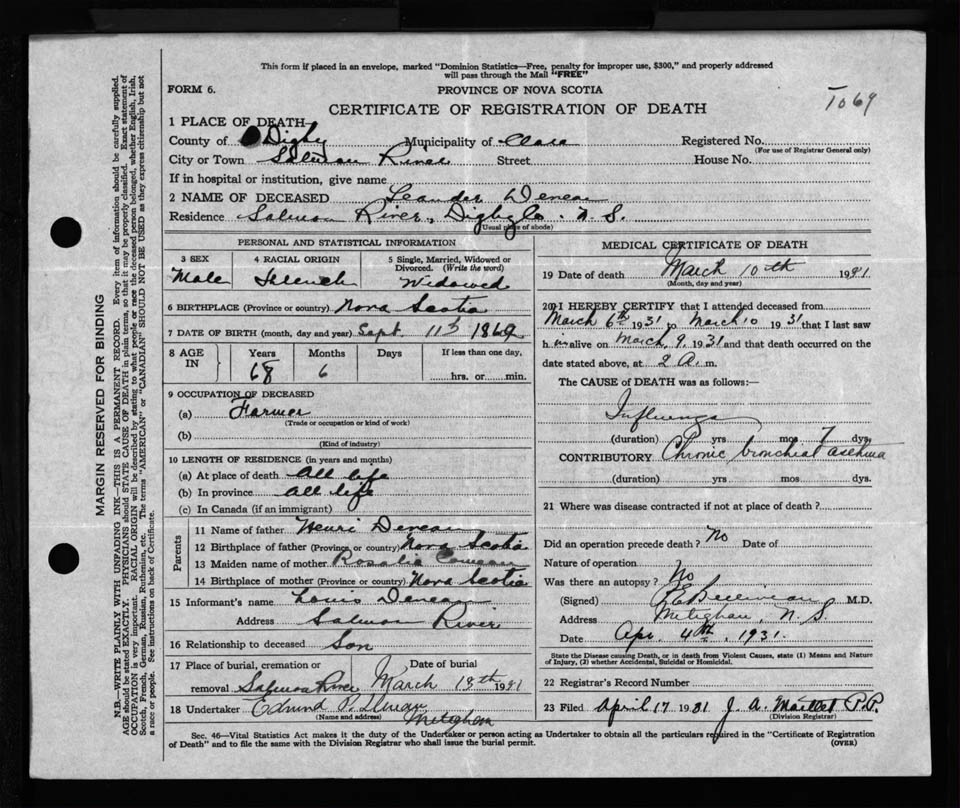 This form if placed in an envelope, marked "Dominion Statistics—Free, penalty for improper use, $300," and properly addressed
will pass through the Mail "FREE"
FORM 6.
PROVINCE OF NOVA SCOTIA
1069
CERTIFICATE OF REGISTRATION OF DEATH
1 PLACE OF DEATH
County of Digby Municipality of Clare Registered No.
(For use of Registrar General only)
City or Town Salmon River Street House No.
If in hospital or institution, give name
2 NAME OF DECEASED Leander Deveau
Residence Salmon River, Digby Co. N. S.
(Usual place of abode)
PERSONAL AND STATISTICAL INFORMATION
3 SEX
Male
4 RACIAL ORIGIN
French
5 Single, Married, Widowed or
Divorced. (Write the word)
Widowed
6 BIRTHPLACE (Province or country) Nova Scotia
7 DATE OF BIRTH (month, day and year) Sept. 11th
8 AGE
IN
Years
68
Months
6
Days
If less than one day,
hrs. or min.
9 OCCUPATION OF DECEASED
(a) Farmer
(Trade or occupation or kind of work)
(b)
(Kind of industry)
10 LENGTH OF RESIDENCE (in years and months)
(a) At place of death All life
(b) In province all life
(c) In Canada (if an immigrant)
Parents
11 Name of father Henri Deveau
12 Birthplace of father (Province or country) Nova Scotia
13 Maiden name of mother Rosalie Comeau
14 Birthplace of mother (Province or country) Nova Scotia
15 Informant's name Louis Deveau
Address Salmon River
16 Relationship to deceased Son
17 Place of burial, cremation or Date of burial
removal Salmon River March 13th 1931
18 Undertaker Edmund P.
(Name and address) Meteghan
MEDICAL CERTIFICATE OF DEATH
19 Date of death March 10th 1931
(Month, day and year)
20 I HEREBY CERTIFY that I attended deceased from
March 6th 1931 to March 10 1931 that I last saw
him alive on March 9, 1931 and that death occurred on the
date stated above, at 2 A. m.
The CAUSE of DEATH was as follows:—
Influenza
(duration) yrs mos 7 dys
CONTRIBUTORY Chronic bronchial asthma
(duration) yrs mos dys.
21 Where was disease contracted if not at place of death?
Did an operation precede death? No Date of
Nature of operation
Was there an autopsy? No
(Signed) M.D.
Address Meteghan, N. S.
Date Apr. 4th, 1931.
State the Disease causing Death, or in death from Violent Causes, state (1) Means and Nature
of Injury, (2) whether Accidental, Suicidal or Homicidal.
22 Registrar's Record Number
23 Filed April 17 1931 J. A. Maillet P.P.
(Division Registrar)
Sec. 46—Vital Statistics Act makes it the duty of the Undertaker or person acting as Undertaker to obtain all the particulars required in the "Certificate of Registration
of Death" and to file the same with the Division Registrar who shall issue the burial permit.
(OVER)
MARGIN RESERVED FOR BINDING
N.B.—WRITE PLAINLY WITH UNFADING INK—THIS IS A PERMANENT RECORD. Every item of information should be carefully supplied.
AGE should be stated EXACTLY. PHYSICIANS should STATE CAUSE OF DEATH in plain terms, so that it may be properly classified. Exact statement of
OCCUPATION is very important. RACIAL ORIGIN will be described by stating to what people or race the deceased person belonged, whether English, Irish,
Scotch, French, German, Russian, Ruthenian, etc. The terms "AMERICAN" or "CANADIAN" SHOULD NOT BE USED as they express citizenship but not
a race or people. See instructions on back of Certificate.